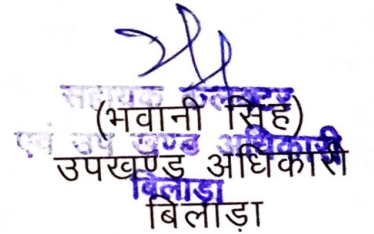 सहायक कलक्टर
(भवानी सिंह)
एवं उप खण्ड अधिकारी
उपखण्ड अधिकारी
बिलाड़ा
बिलाड़ा